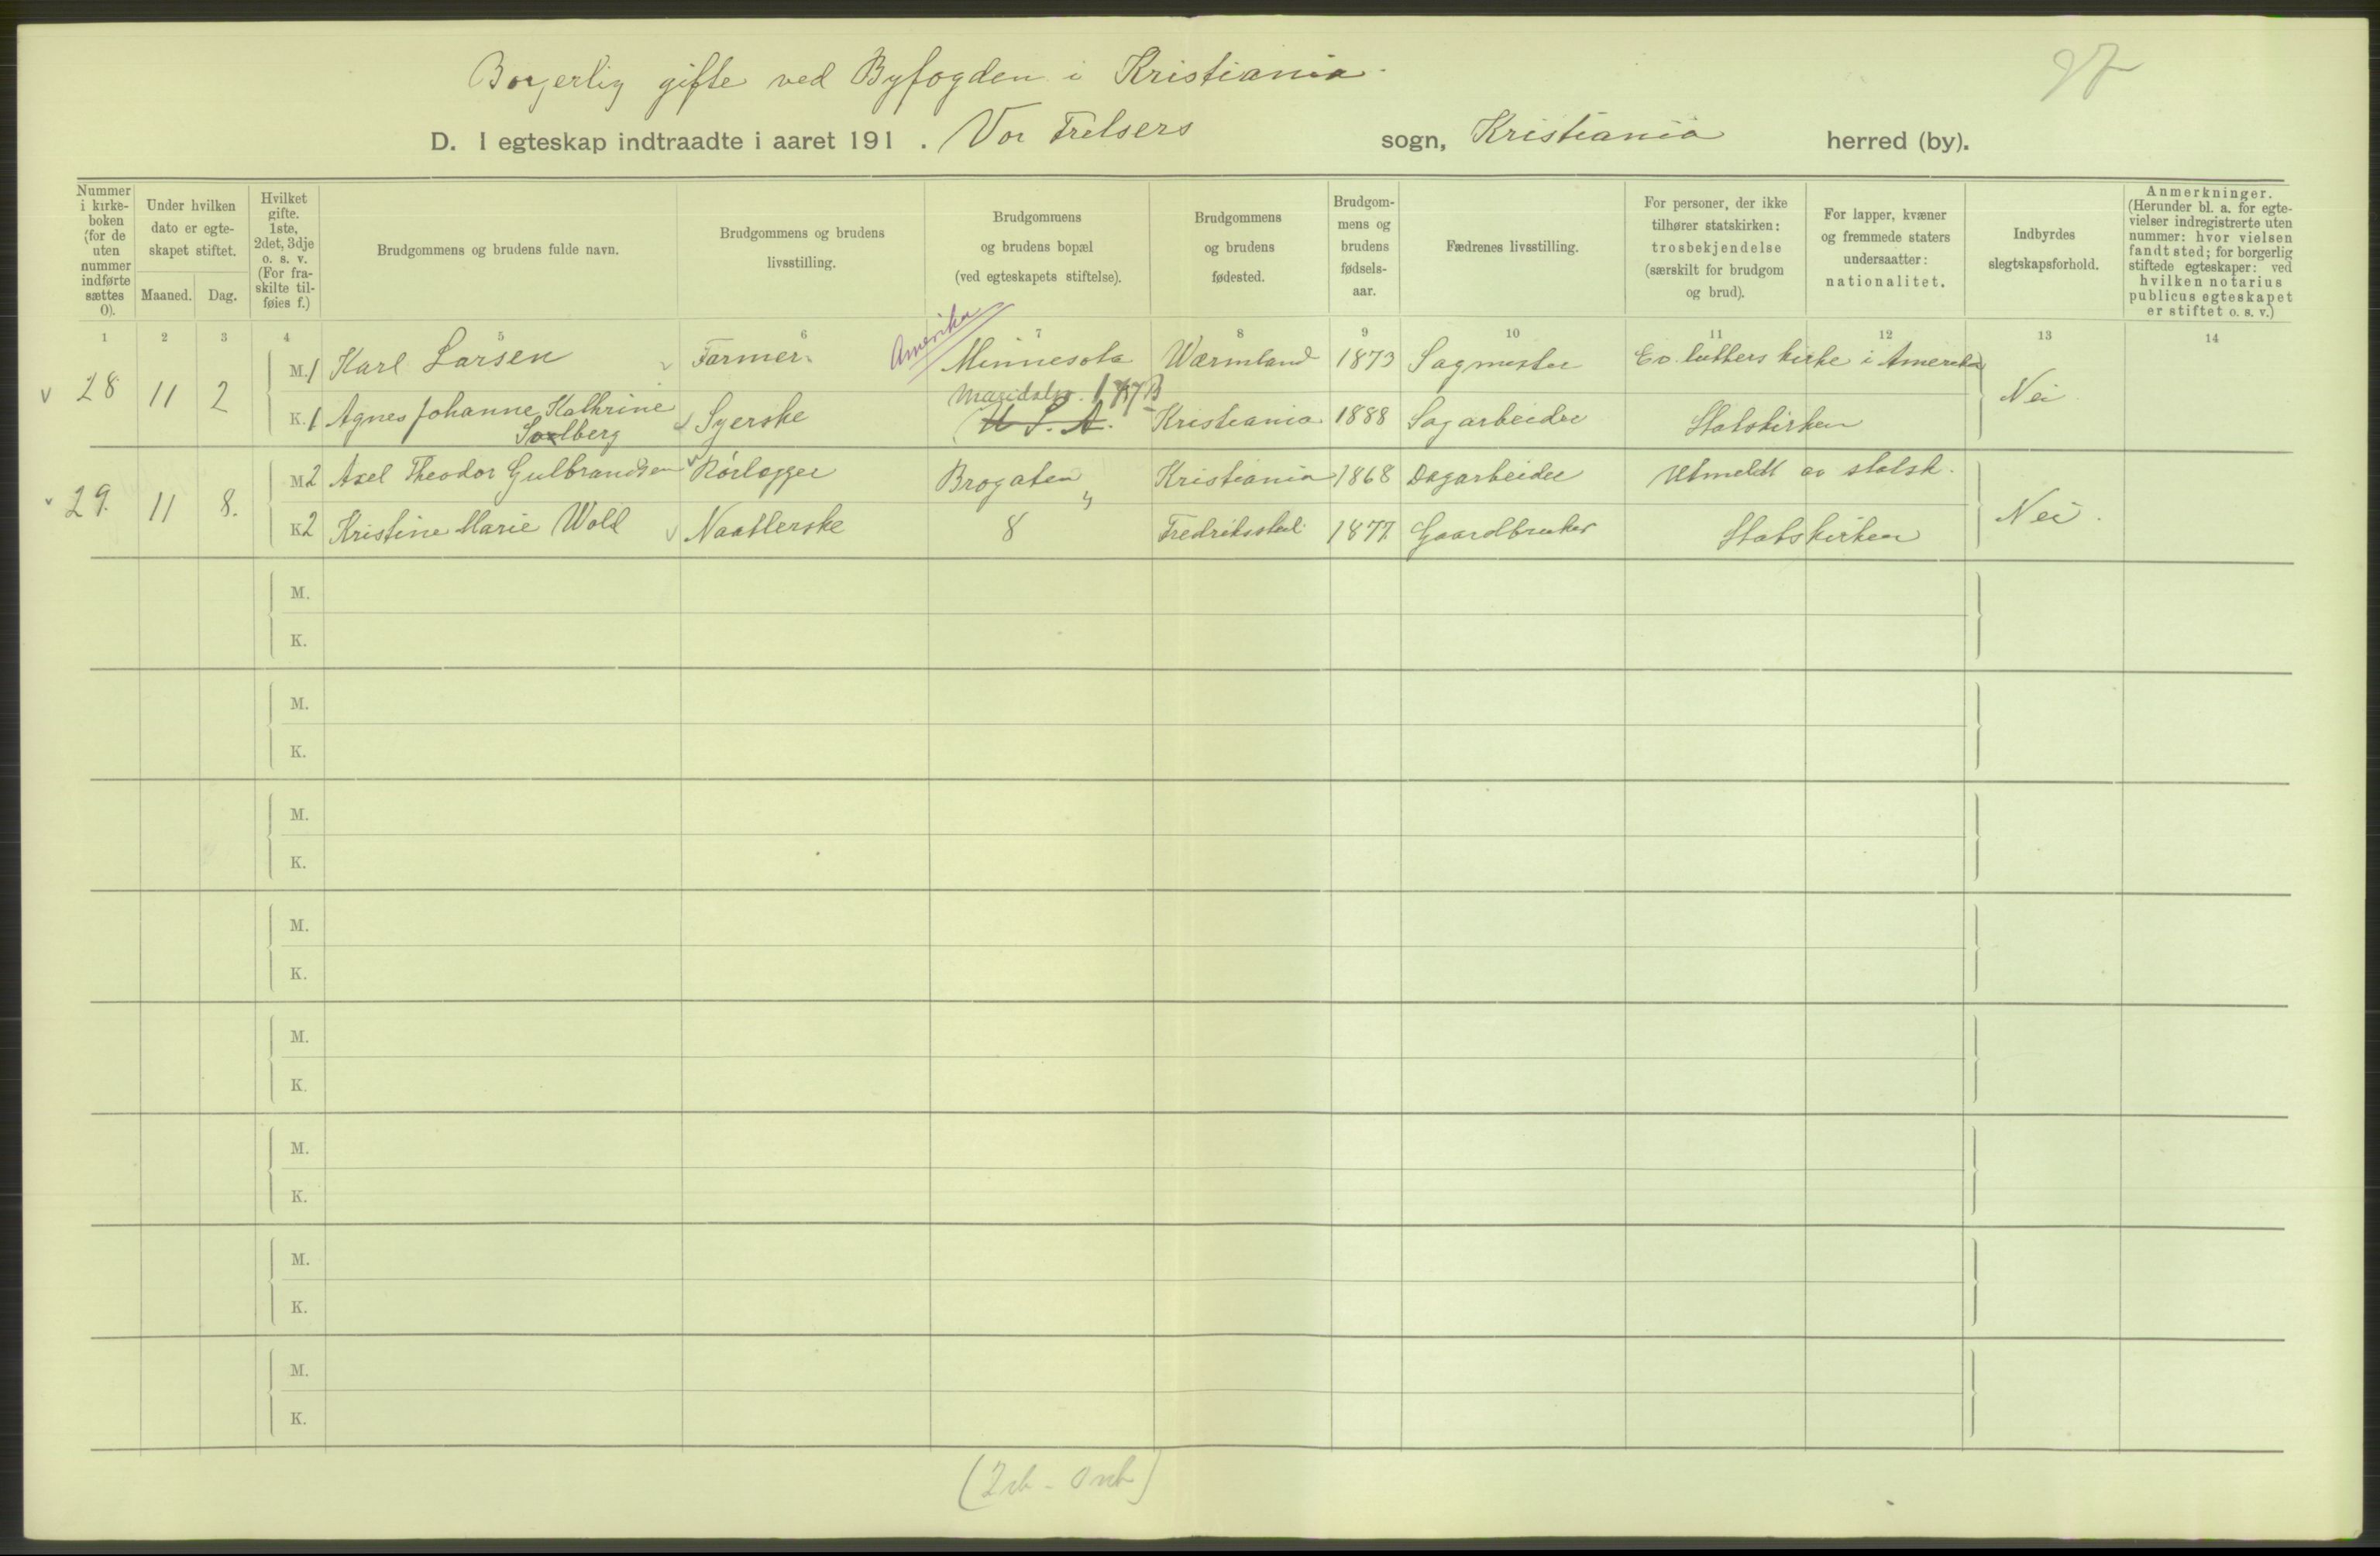 Borgerlig gifte ved Byfogden i Kristiania.
97
D. I egteskap indtraadte i aaret 191 . Vor Frelsers sogn, Kristiania herred (by).
Nummer i kirke- boken (for de uten nummer indførte sættes 0).
Under hvilken dato er egte- skapet stiftet.
Maaned. Dag.
Hvilket gifte. 1ste, 2det, 3dje o. s. v. (For fra- skilte til- føies f.)
Brudgommens og brudens fulde navn.
Brudgommens og brudens livsstilling.
Brudgommens og brudens bopæl (ved egteskapets stiftelse).
Brudgommens og brudens fødested.
Brudgom- mens og brudens fødsels- aar.
Fædrenes livsstilling.
For personer, der ikke tilhører statskirken: trosbekjendelse (særskilt for brudgom og brud).
For lapper, kvæner og fremmede staters undersaatter: nationalitet.
Indbyrdes slegtskapsforhold.
Anmerkninger. (Herunder bl. a. for egte- vielser indregistrerte uten nummer: hvor vielsen fandt sted; for borgerlig stiftede egteskaper: ved hvilken notarius publicus egteskapet er stiftet o. s. v.)
1 2 3 4 5 6 7 8 9 10 11 12 13 14
Amerika
28 11 2 M. 1 Karl Larsen Farmer Minnesota Wærmland 1873 Sagmester Ev. luthers kirke i Amerika Nei
Maridalsv.
K. 1 Agnes Johanne Kathrine Solberg Syerske U. S. A. Kristiania 1888 Sagarbeider Statskirken
29. 11 8. M. 2 Axel Theodor Gulbrandsen Rörlægger Brogaten Kristiania 1868 Dagarbeider Utmeldt av statsk. Nei.
K. 2 Kristine Marie Wold Naatlerske 8 Fredriksstad 1877 Gaardbruker Statskirken
M.
K.
M.
K.
M.
K.
M.
K.
M.
K.
M.
K.
M.
K.
M.
K.